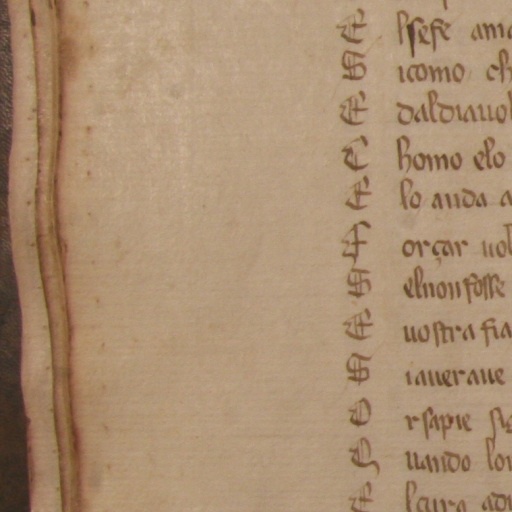 E lsese ama
S icomo ch
E daldiauol
C homo elo
E lo anda a
F orçar uol
S elnonfosse
E uostra fia
S iauer aue
O r sapie sig
Q uando lon
E lcura adu